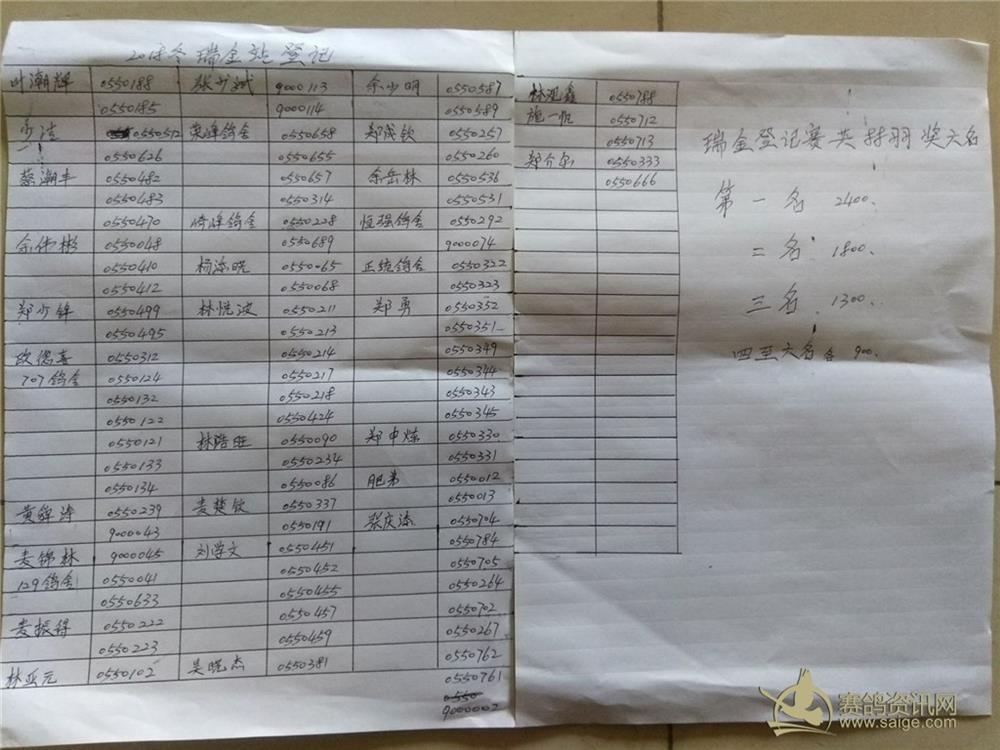 瑞金站登记
叶潮辉 0550188 9000113 余少明 0550587
0550185 9000114 0550589
0550512 荣峰鸽舍 0550658 郑成钦 0550257
0550626 0550655 0550260
蔡潮丰 0550482 0550657 余岳林 0550536
0550483 0550314 0550531
0550470 鸽舍 0550228 恒强鸽舍 0550292
余伟彬 0550048 0550689 9000074
0550410 杨添晓 0550065 正统鸽舍 0550322
0550412 0550068 0550323
郑少锋 0550499 林悦波 0550211 郑勇 0550352
0550495 0550213 0550351
欧德喜 0550312 0550214 0550349
707鸽舍 0550124 0550217 0550344
0550132 0550218 0550343
0550122 0550424 0550345
0550121 林浩旺 0550090 郑中炼 0550330
0550133 0550234 0550331
0550134 0550086 肥弟 0550012
黄舜涛 0550239 麦楚钦 0550337 0550013
9000043 0550191 张庆添 0550704
麦锦林 9000045 刘学文 0550451 0550784
129鸽舍 0550041 0550452 0550705
0550633 0550455 0550264
麦振得 0550222 0550457 0550702
0550223 0550459 0550267
林亚元 0550102 吴晓杰 0550381 0550762
0550761
0550
9000002
林旭鑫 0550788
施一帆 0550712
0550713
0550333
0550666
瑞金登记赛共 羽奖六名
第一名 2400.
二名. 1800.
三名. 1300.
四至六名各 900.
赛鸽资讯网
www.saige.com